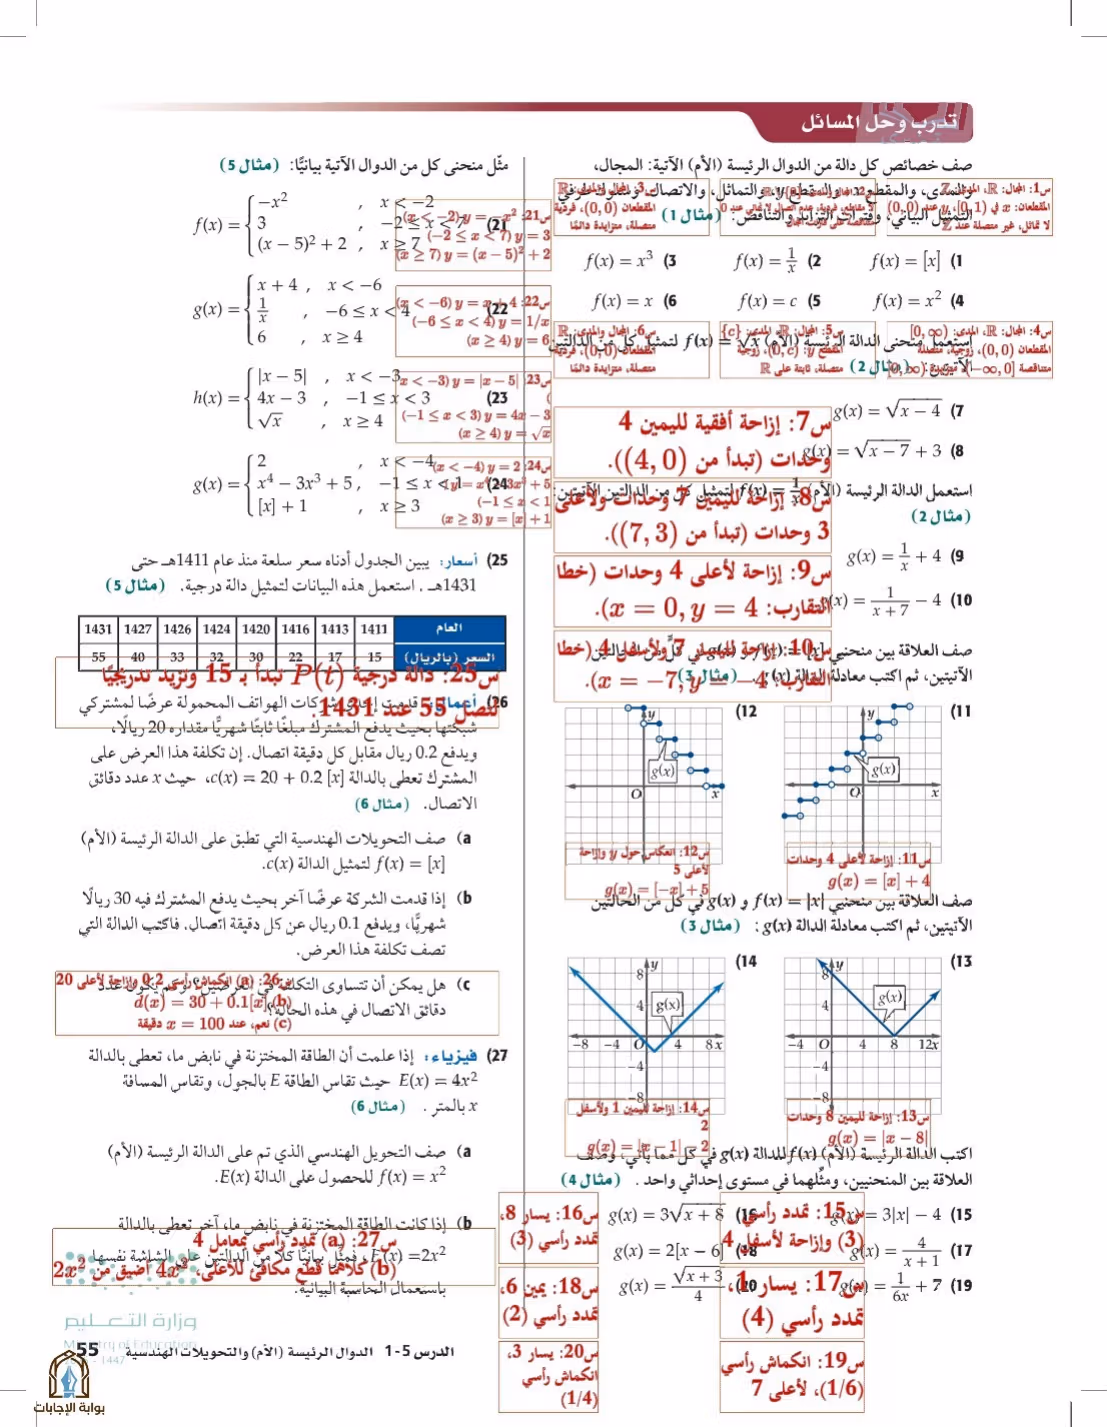 تدرب وحل المسائل
صف خصائص كل دالة من الدوال الرئيسة (الأم) الآتية: المجال،
والمدى، والمقطع x، والمقطع y، والتماثل، والاتصال، وسلوك طرفي
التمثيل البياني، وفترات التزايد والتناقص: (مثال 1)
س1: المجال: ℝ، المدى: ℤ
المقطعان: x في [0, 1)، y عند (0,0)
لا تماثل، غير متصلة عند ℤ
س3: المجال والمدى: ℝ
المقطعان (0,0)، فردية
متصلة، متزايدة دائمًا
1) f(x) = [x]
2) f(x) = 1/x
3) f(x) = x³
4) f(x) = x²
5) f(x) = c
6) f(x) = x
س4: المجال: ℝ، المدى: [0, ∞)
المقطعان (0,0)، زوجية، متصلة
س5: المجال: ℝ، المدى: {c}
المقطع y: (0, c)، زوجية
متصلة، ثابتة على ℝ
س6: المجال والمدى: ℝ
المقطعان (0,0)، فردية
متصلة، متزايدة دائمًا
استعمل منحنى الدالة الرئيسة (الأم) f(x) = √x لتمثيل كل من الدالتين
الآتيتين: (مثال 2)
7) g(x) = √(x − 4)
8) g(x) = √(x − 7) + 3
س7: إزاحة أفقية لليمين 4
وحدات (تبدأ من (4, 0)).
استعمل الدالة الرئيسة (الأم) f(x) = 1/x لتمثيل كل من الدالتين الآتيتين:
(مثال 2)
س8: إزاحة لليمين 7 وحدات ولأعلى
3 وحدات (تبدأ من (7, 3)).
9) g(x) = 1/x + 4
10) g(x) = 1/(x + 7) − 4
س9: إزاحة لأعلى 4 وحدات (خطا
التقارب: x = 0, y = 4).
صف العلاقة بين منحنيي f(x) = [x] و g(x) في كل من الحالتين
الآتيتين، ثم اكتب معادلة الدالة g(x): (مثال 3)
س10: إزاحة لليسار 7 ولأسفل 4 (خطا
التقارب: x = −7, y = −4).
11)
y
g(x)
O
x
12)
y
g(x)
O
x
س11: إزاحة لأعلى 4 وحدات
g(x) = [x] + 4
س12: انعكاس حول y وإزاحة
لأعلى 5
g(x) = [−x] + 5
صف العلاقة بين منحنيي f(x) = |x| و g(x) في كل من الحالتين
الآتيتين، ثم اكتب معادلة الدالة g(x): (مثال 3)
13)
y
8
4
g(x)
−4 O 4 8 12x
−4
−8
14)
y
8
4
g(x)
−8 −4 O 4 8x
−4
−8
س13: إزاحة لليمين 8 وحدات
g(x) = |x − 8|
س14: إزاحة لليمين 1 ولأسفل
2
g(x) = |x − 1| − 2
اكتب الدالة الرئيسة (الأم) f(x) للدالة g(x) في كل مما يأتي، وصف
العلاقة بين المنحنيين، ومثّلهما في مستوى إحداثي واحد. (مثال 4)
15) g(x) = 3|x| − 4
16) g(x) = 3√(x + 8)
17) g(x) = 4/(x + 1)
18) g(x) = 2[x − 6]
19) g(x) = 1/6x + 7
20) g(x) = √(x + 3)/4
س15: تمدد رأسي
(3) وإزاحة لأسفل 4
س16: يسار 8،
تمدد رأسي (3)
س17: يسار 1،
تمدد رأسي (4)
س18: يمين 6،
تمدد رأسي (2)
س19: انكماش رأسي
(1/6)، لأعلى 7
س20: يسار 3،
انكماش رأسي
(1/4)
مثّل منحنى كل من الدوال الآتية بيانيًّا: (مثال 5)
21) f(x) = { −x² , x < −2
3 , −2 ≤ x < 7
(x − 5)² + 2 , x ≥ 7
س21: y = −x² (x < −2)
y = 3 (−2 ≤ x < 7)
y = (x − 5)² + 2 (x ≥ 7)
22) g(x) = { x + 4 , x < −6
1/x , −6 ≤ x < 4
6 , x ≥ 4
س22: y = x + 4 (x < −6)
y = 1/x (−6 ≤ x < 4)
y = 6 (x ≥ 4)
23) h(x) = { |x − 5| , x < −3
4x − 3 , −1 ≤ x < 3
√x , x ≥ 4
س23: y = |x − 5| (x < −3)
y = 4x − 3 (−1 ≤ x < 3)
y = √x (x ≥ 4)
24) g(x) = { 2 , x < −4
x⁴ − 3x³ + 5 , −1 ≤ x < 1
[x] + 1 , x ≥ 3
س24: y = 2 (x < −4)
y = x⁴ − 3x³ + 5
(−1 ≤ x < 1)
y = [x] + 1 (x ≥ 3)
25) أسعار: يبين الجدول أدناه سعر سلعة منذ عام 1411هـ حتى
1431هـ. استعمل هذه البيانات لتمثيل دالة درجية. (مثال 5)
العام 1411 1413 1416 1420 1424 1426 1427 1431
السعر (بالريال) 15 17 22 30 32 33 40 55
س25: دالة درجية P(t) تبدأ بـ 15 وتزيد تدريجيًا
لتصل 55 عند 1431.
26) أعمال: قدمت إحدى شركات الهواتف المحمولة عرضًا لمشتركي
شبكتها بحيث يدفع المشترك مبلغًا ثابتًا شهريًّا مقداره 20 ريالًا،
ويدفع 0.2 ريال مقابل كل دقيقة اتصال. إن تكلفة هذا العرض على
المشترك تعطى بالدالة c(x) = 20 + 0.2 [x]، حيث x عدد دقائق
الاتصال. (مثال 6)
a) صف التحويلات الهندسية التي تطبق على الدالة الرئيسة (الأم)
f(x) = [x] لتمثيل الدالة c(x).
b) إذا قدمت الشركة عرضًا آخر بحيث يدفع المشترك فيه 30 ريالًا
شهريًّا، ويدفع 0.1 ريال عن كل دقيقة اتصال. فاكتب الدالة التي
تصف تكلفة هذا العرض.
c) هل يمكن أن تتساوى التكلفة في العرضين؟ وكم يكون عدد
دقائق الاتصال في هذه الحالة؟
س26: (a) انكماش رأسي 0.2 وإزاحة لأعلى 20
(b) d(x) = 30 + 0.1[x]
(c) نعم، عند x = 100 دقيقة
27) فيزياء: إذا علمت أن الطاقة المختزنة في نابض ما، تعطى بالدالة
E(x) = 4x² حيث تقاس الطاقة E بالجول، وتقاس المسافة
x بالمتر. (مثال 6)
a) صف التحويل الهندسي الذي تم على الدالة الرئيسة (الأم)
f(x) = x² للحصول على الدالة E(x).
b) إذا كانت الطاقة المختزنة في نابض ما، آخر تعطى بالدالة
E(x) = 2x²، فمثّل بيانيًّا كلا من الدالتين على الشاشة نفسها
باستعمال الحاسبة البيانية.
س27: (a) تمدد رأسي بمعامل 4
(b) كلاهما قطع مكافئ للأعلى، 4x² أضيق من 2x²
وزارة التعليم
Ministry of Education
- 1447
الدرس 5-1 الدوال الرئيسة (الأم) والتحويلات الهندسية 55
بوابة الإجابات